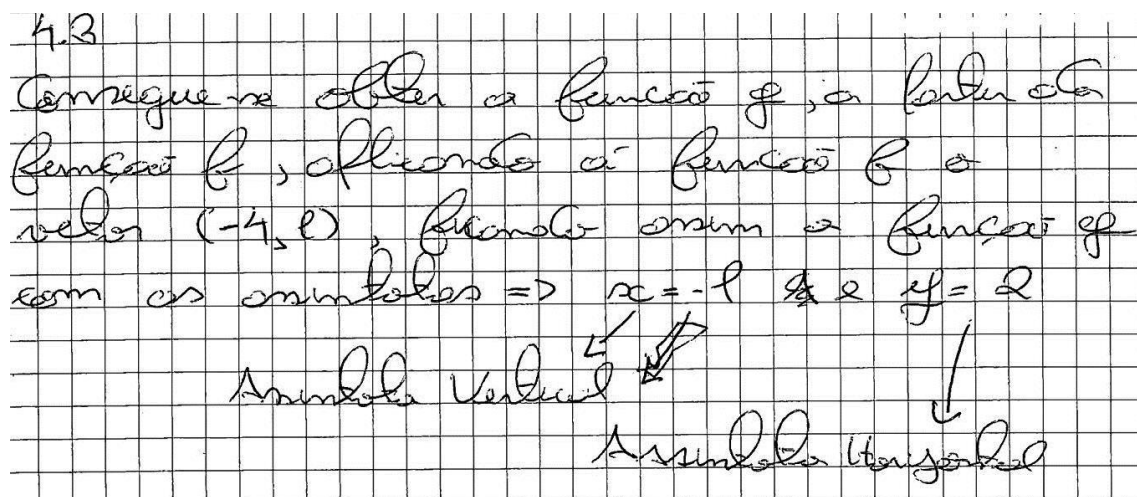 4.3
Consegue-se obter a função g, a partir da
função f, aplicando á função f o
vetor (-4,1), ficando assim a função g
com as assintotas => x = -1 e y = 2
Assintota Vertical
Assintota Horizontal